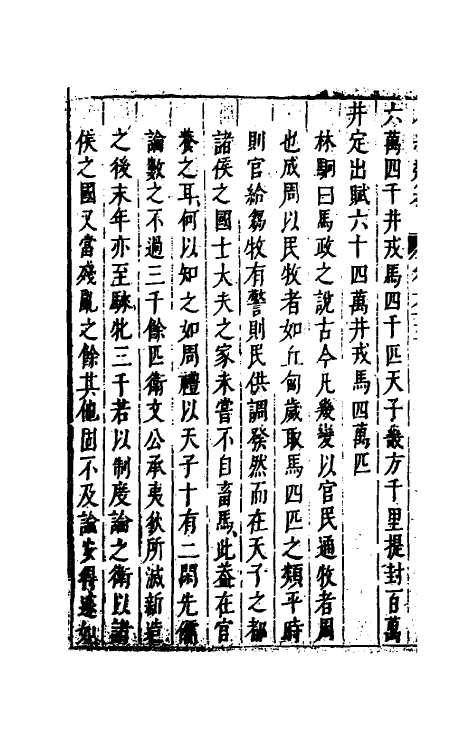 六萬四千井戎馬四千匹天子畿方千里提封百萬
井定出賦六十四萬井戎馬四萬匹
林駉曰馬政之說古今凡幾變以官民通牧者周
也成周以民牧者如丘甸歲取馬四匹之類平時
則官給芻牧有警則民供調發然而在天子之都
諸侯之國士大夫之家未嘗不自畜馬此蓋在官
養之耳何以知之如周禮以天子十有二閑先儒
論數之不過三千餘匹衛文公承夷狄所滅新造
之後末年亦至騋牝三千若以制度論之衛以諸
侯之國又當殘亂之餘其他固不及論安得遽如